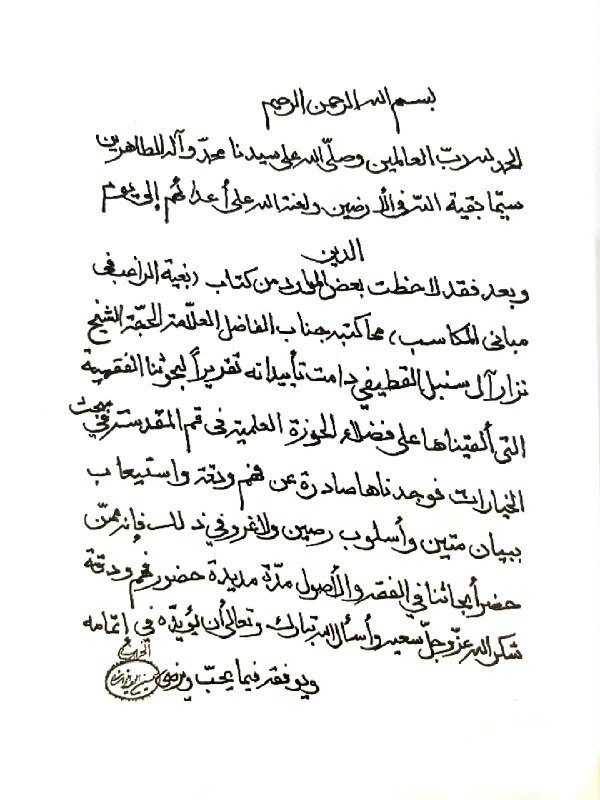 بسم الله الرحمن الرحيم
الحمد لله ربّ العالمين وصلّى الله على سيدنا محمدّ وآله الطاهرين
سيّما بقية الله في الأرضين ولعنة الله على أعدائهم إلى يوم
الدين
وبعد فقد لاحظت بعض الموارد من كتاب (بغية الراغب في
مباني المكاسب) مما كتبه جناب الفاضل العلّامة الحجّة الشيخ
نزار آل سنبل القطيفي دامت تأييداته تقريراً لبحوثنا الفقهية
التي ألقيناها على فضلاء الحوزة العلمية في قم المقدسة في مبحث
الخيارات فوجدناها صادرة عن فهم ودقة واستيعاب
ببيان متين وأسلوب رصين ولا غرو في ذلك فإنه ممّن
حضر أبحاثنا في الفقه والأصول مدّة مديدة حضور فهم ودقة
شكر الله عزّ وجلّ سعيه وأسأل الله تبارك وتعالى أن يؤيّده في إتمامه
ويوفقه فيما يحبّ ويرضى